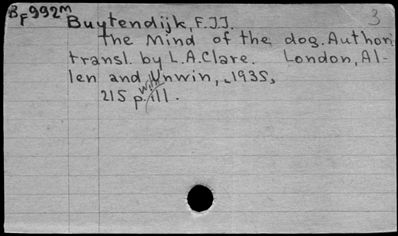 BF992M
3
Buytendijk, F.J.J.
The Mind of the dog. Authori
transl. by L.A.Clare. London, Al-
len and Unwin, 1935,
215 p. with ill.